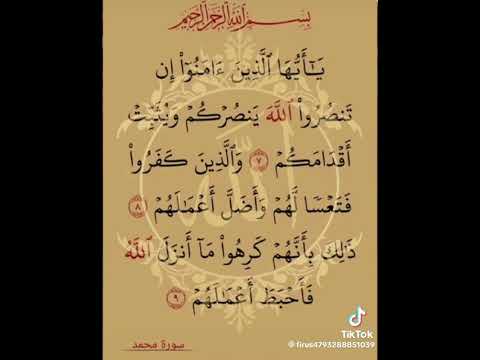 بِسْمِ اللَّهِ الرَّحْمَٰنِ الرَّحِيمِ
يَـٰٓأَيُّهَا ٱلَّذِينَ ءَامَنُوٓا۟ إِن
تَنصُرُوا۟ ٱللَّهَ يَنصُرْكُمْ وَيُثَبِّتْ
أَقْدَامَكُمْ ٧ وَٱلَّذِينَ كَفَرُوا۟
فَتَعْسًا لَّهُمْ وَأَضَلَّ أَعْمَـٰلَهُمْ ٨
ذَٰلِكَ بِأَنَّهُمْ كَرِهُوا۟ مَآ أَنزَلَ ٱللَّهُ
فَأَحْبَطَ أَعْمَـٰلَهُمْ ٩
سورة محمد
TikTok
@firus4793288851039